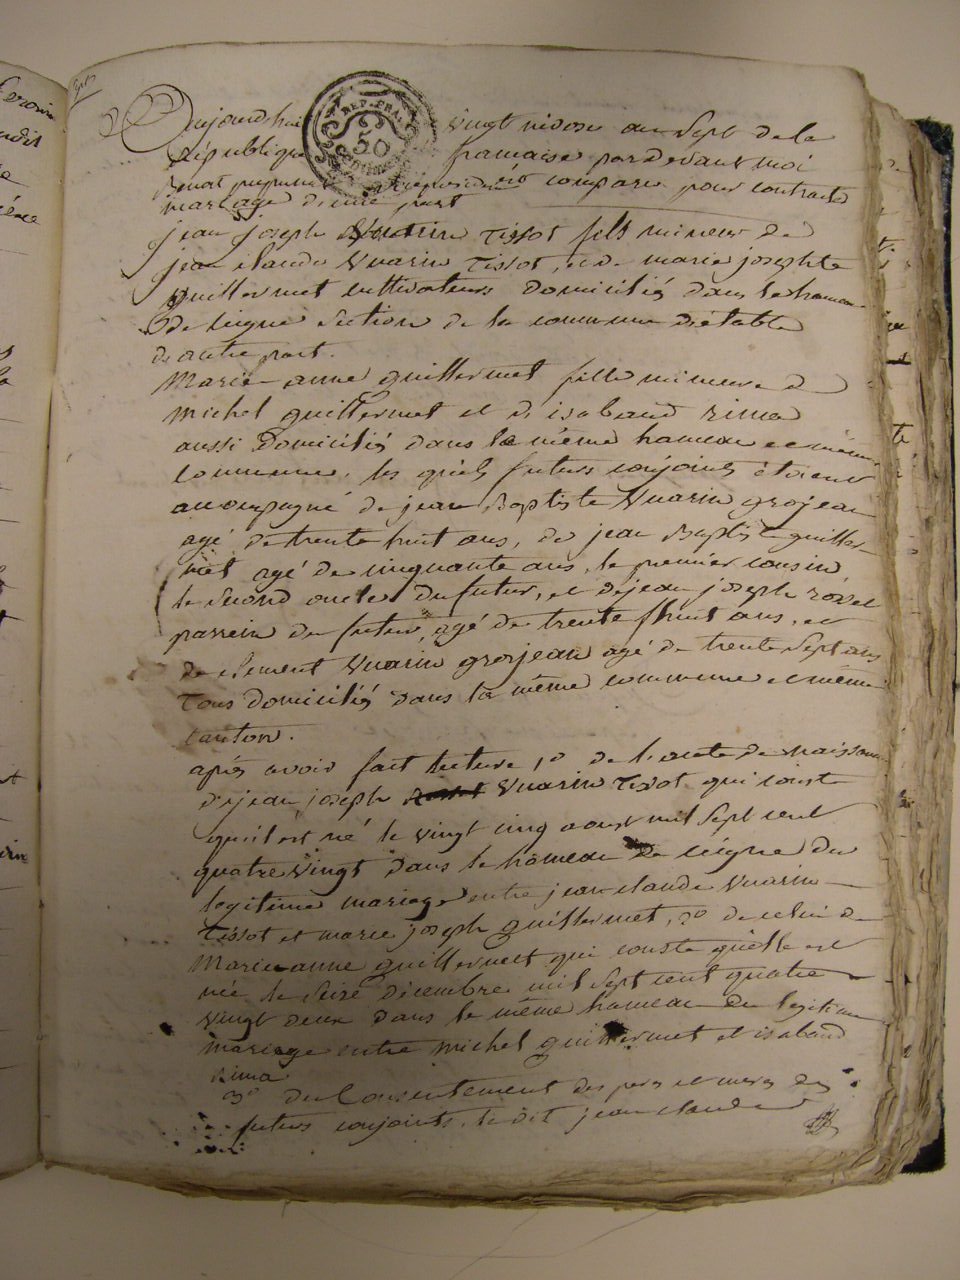 Aujourd'hui vingt nivose an sept de la
République francaise par devant moi
Benoit comparu pour contracter
mariage d'une part
jean joseph Vuarin Tissot fils mineur de
jean claude Vuarin Tissot, et de marie josephte
guillermet cultivateurs domiciliés dans le hameau
de section de la commune
de autre part.
Marie anne guillermet fille mineure de
michel guillermet et d'isabaud rima
aussi domiciliés dans le même hameau et même
commune, les quels futurs conjoints étoient
accompagné de jean Baptiste Vuarin grojean
agé de trente huit ans, de jean Baptiste guiller-
met agé de cinquante ans, le premier cousin
le second oncle du futur, et de jean joseph
parrein du futur, agé de trente huit ans, et
de clement Vuarin grosjean agé de trente sept ans
Tous domiciliés dans la même commune et même
canton.
après avoir fait lecture 1º de l'acte de naissance
de jean joseph Vuarin Tissot qui conste
qu'il est né le vingt cinq aoust mil sept cent
quatre vingt dans le hameau de du
legitime mariage entre jean claude Vuarin
Tissot et marie joseph guillermet, 2º de celui de
Marie anne guillermet qui conste qu'elle est
née le seize décembre mil sept cent quatre
vingt deux dans le même hameau du legitime
mariage entre michel guillermet et isabaud
rima
3º du Consentement des pere et mere des
futurs conjoints, le dit jean claude
REP. FRA.
50
centimes